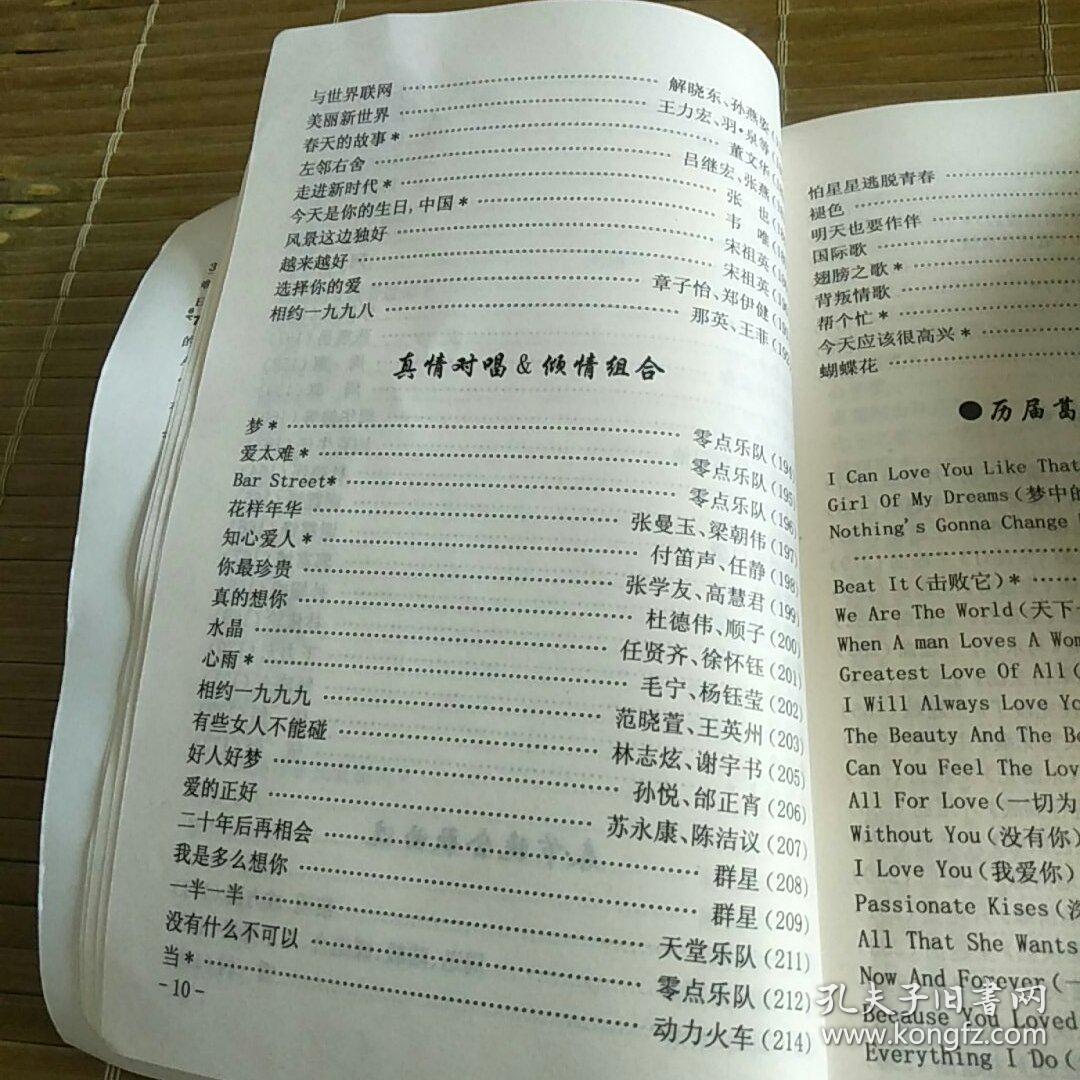 与世界联网 …… 解晓东、孙燕姿(
美丽新世界 …… 王力宏、羽·泉等(
春天的故事* …… 董文华(
左邻右舍 …… 吕继宏、张燕(
走进新时代* …… 张 也(
今天是你的生日,中国* …… 韦 唯(
风景这边独好 …… 宋祖英(
越来越好 …… 宋祖英(
选择你的爱 …… 章子怡、郑伊健(
相约一九九八 …… 那英、王菲(192
真情对唱&倾情组合
梦* …… 零点乐队(194
爱太难* …… 零点乐队(195
Bar Street* …… 零点乐队(196
花样年华 …… 张曼玉、梁朝伟(197)
知心爱人* …… 付笛声、任静(198)
你最珍贵 …… 张学友、高慧君(199)
真的想你 …… 杜德伟、顺子(200)
水晶 …… 任贤齐、徐怀钰(201)
心雨* …… 毛宁、杨钰莹(202)
相约一九九九 …… 范晓萱、王英州(203)
有些女人不能碰 …… 林志炫、谢宇书(205)
好人好梦 …… 孙悦、邰正宵(206)
爱的正好 …… 苏永康、陈洁议(207)
二十年后再相会 …… 群星(208)
我是多么想你 …… 群星(209)
一半一半 …… 天堂乐队(211)
没有什么不可以 …… 零点乐队(212)
当* …… 动力火车(214)
-10-
怕星星逃脱青春 ……
褪色 ……
明天也要作伴 ……
国际歌 ……
翅膀之歌* ……
背叛情歌 ……
帮个忙* ……
今天应该很高兴* ……
蝴蝶花 ……
●历届葛
I Can Love You Like That
Girl Of My Dreams(梦中的
Nothing's Gonna Change
……
Beat It(击败它)* ……
We Are The World(天下一
When A man Loves A Wom
Greatest Love Of All(
I Will Always Love Yo
The Beauty And The Be
Can You Feel The Lov
All For Love(一切为
Without You(没有你)
I Love You(我爱你)
Passionate Kises(深
All That She Wants
Now And Forever(一
Because You Loved
Everything I Do(
孔夫子旧书网
www.kongfz.com